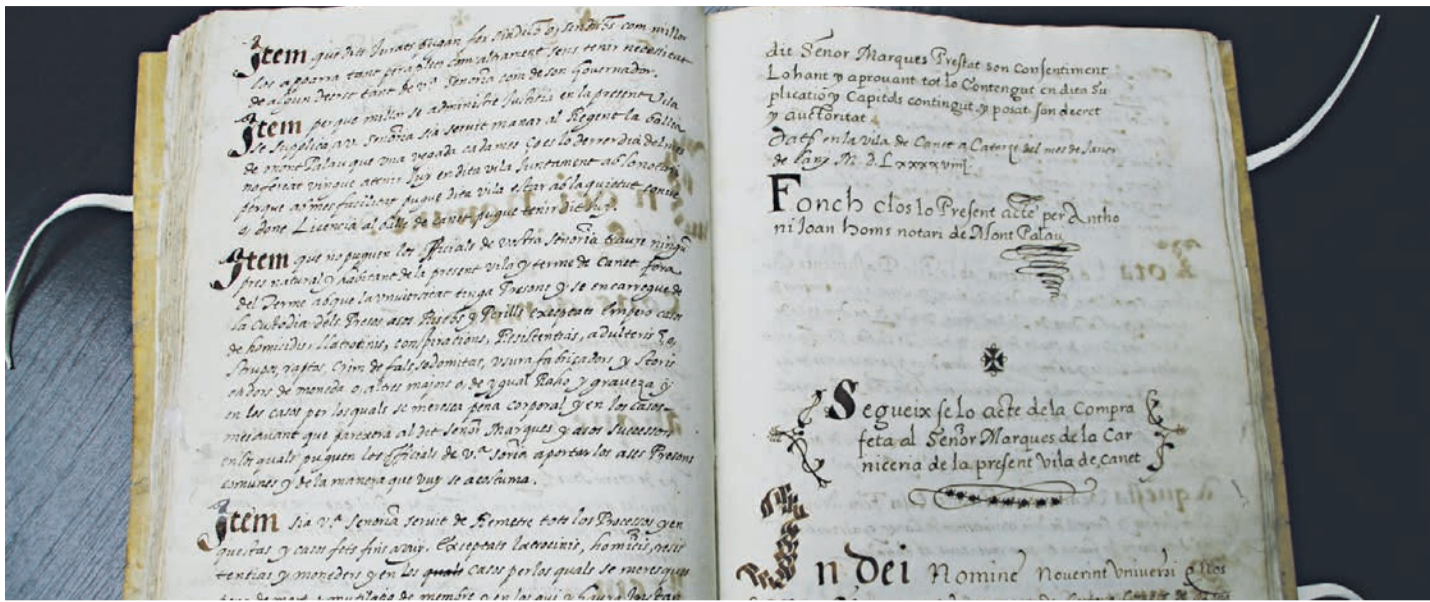 Item que dits Jurats pugan fer sindich o sindichs com millor
los apparra tant pera plets com altrament sens tenir necessitat
de algun decret tant de v.ª Senoria com de son Governador.
Item perque millor se administre Justitia en la present Vila
se supplica a v.ª Senoria sia servit manar al Regent la Ballia
de Mont Palau que una vegada cada mes ço es lo derrer dia del mes
no feriat vingue a tenir Juy en dita vila Juntament ab lo notari
perque ab mes facilitat pugue dita vila estar ab la quietut conve
o done Licencia al de Canet pugue tenir dit Juy.
Item que no puguen los officials de vostra senoria traure ningu
pres natural y habitant de la present vila y terme de Canet fora
del Terme ab que la universitat tinga Presons y se encarregue de
la Custodia dels Presos a sos Riscos y Perills exceptats empero casos
de homicidis, llatrocinis, conspirations, Resistentias, adulteris
strupos, raptos, Crim de fals sodomitas, usura fabricadors y
de moneda o altres majors o de ygual Raho y graveza y
en los casos per los quals se meresca pena corporal y en los casos
mesavant que parexera al dit senor Marques y a sos successors
en los quals puguen los officials de v.ª soria aportar los a ses Presons
comunes y de la manera que vuy se acostuma.
Item sia v.ª Senoria servit de Remetre tots los Processos y en
questas y casos fets fins a vuy. Exceptats latrocinis, homicis, resis
tentias y moneders y en los quals casos per los quals se meresques
pena de mort o mutilatio de membre y en los qui y haura Instan
dit Senor Marques Prestat son Consentiment
Lohant y aprovant tot lo Contengut en dita Su
plicatio y Capitols contingut y posat son decret
y auctoritat.
Datt en la vila de Canet a Catorze del mes de Janer
de lany M. D. Lxxxxviiij.
Fonch clos lo Present acte per Antho
ni Joan Homs notari de Mont Palau
Segueix se lo acte de la Compra
feta al Senor Marques de la Car
niceria de la present Vila de Canet
In Dei Nomine Noverint Universi